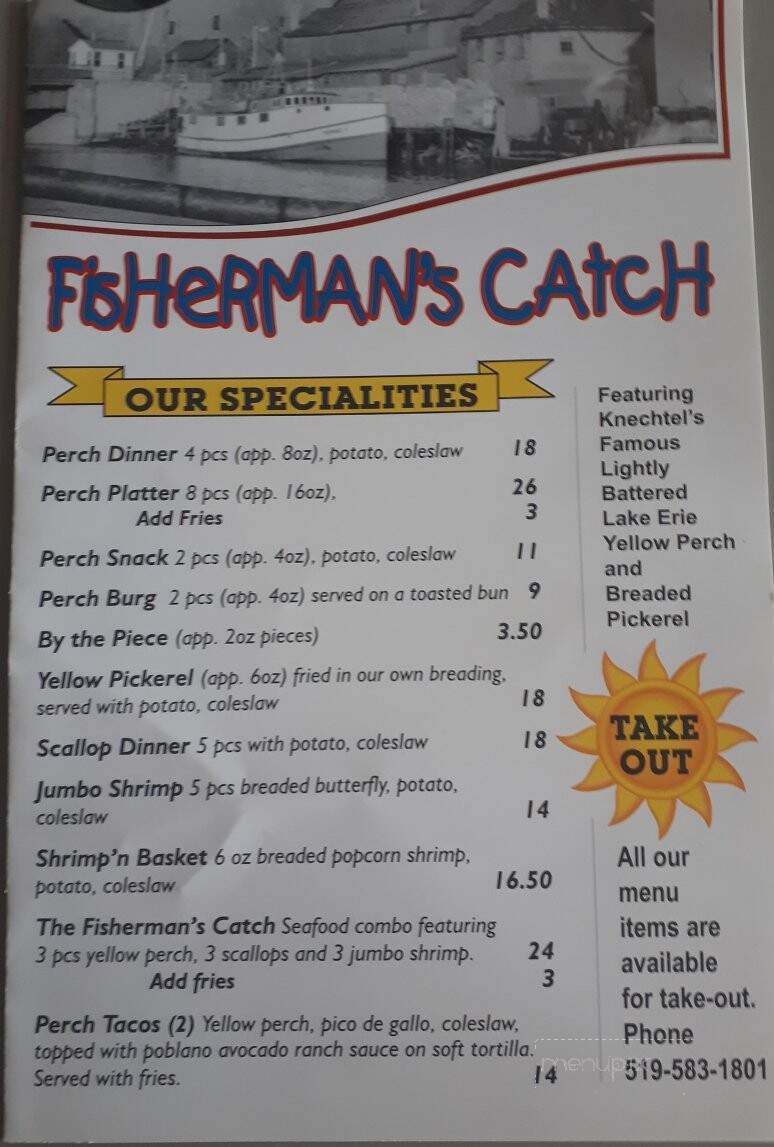 FisHeRMAN's CAtcH
OUR SPECIALITIES
Perch Dinner 4 pcs (app. 8oz), potato, coleslaw 18
Perch Platter 8 pcs (app. 16oz), 26
Add Fries 3
Perch Snack 2 pcs (app. 4oz), potato, coleslaw 11
Perch Burg 2 pcs (app. 4oz) served on a toasted bun 9
By the Piece (app. 2oz pieces) 3.50
Yellow Pickerel (app. 6oz) fried in our own breading,
served with potato, coleslaw 18
Scallop Dinner 5 pcs with potato, coleslaw 18
Jumbo Shrimp 5 pcs breaded butterfly, potato,
coleslaw 14
Shrimp'n Basket 6 oz breaded popcorn shrimp,
potato, coleslaw 16.50
The Fisherman's Catch Seafood combo featuring
3 pcs yellow perch, 3 scallops and 3 jumbo shrimp. 24
Add fries 3
Perch Tacos (2) Yellow perch, pico de gallo, coleslaw,
topped with poblano avocado ranch sauce on soft tortilla.
Served with fries. 14
Featuring
Knechtel's
Famous
Lightly
Battered
Lake Erie
Yellow Perch
and
Breaded
Pickerel
TAKE
OUT
All our
menu
items are
available
for take-out.
Phone
519-583-1801